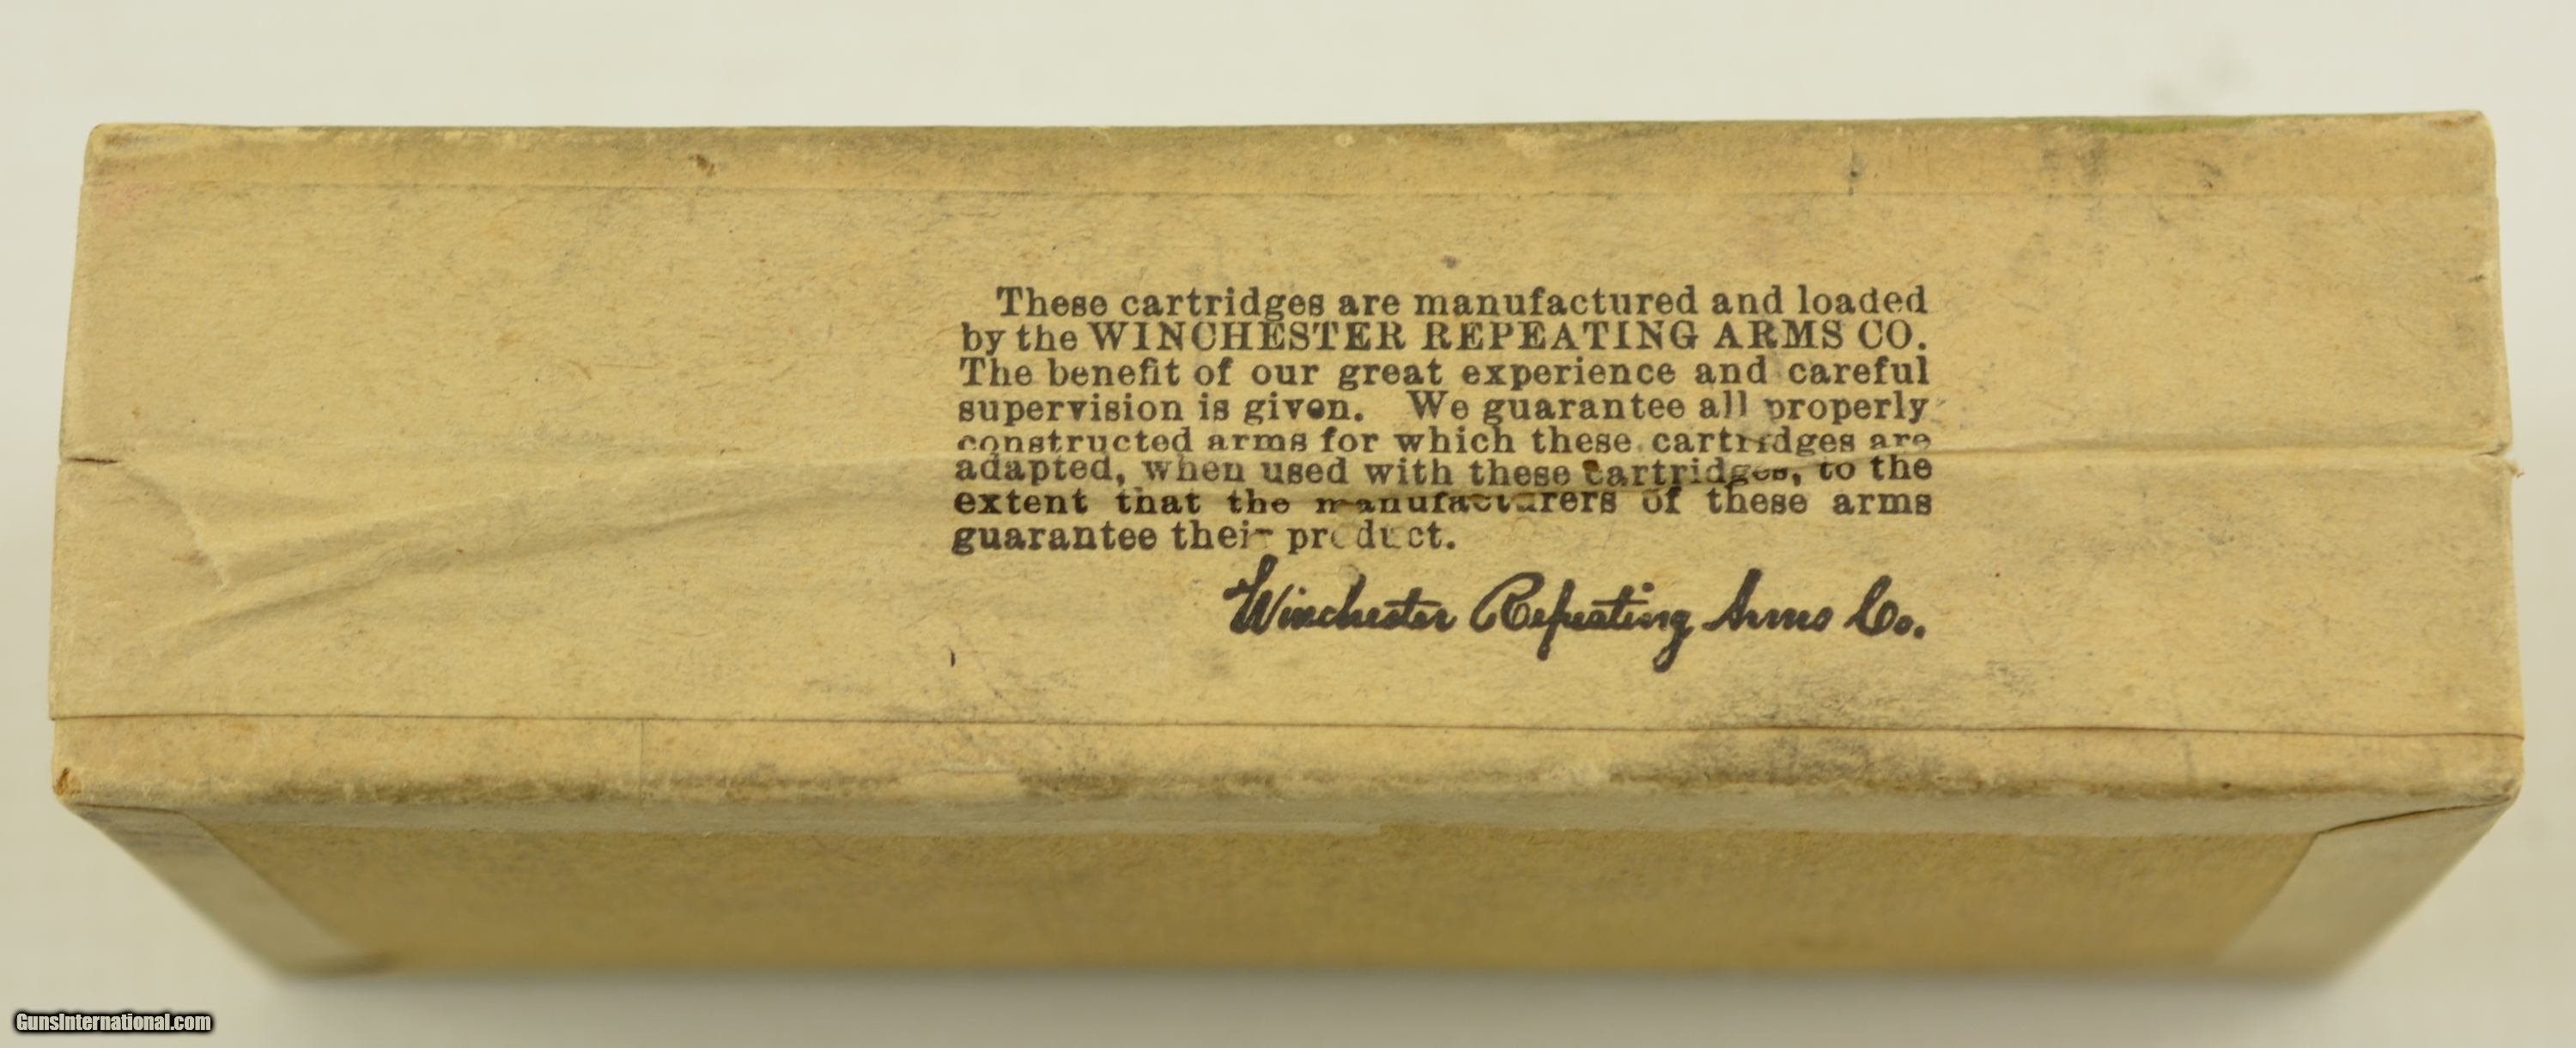 These cartridges are manufactured and loaded
by the WINCHESTER REPEATING ARMS CO.
The benefit of our great experience and careful
supervision is given. We guarantee all properly
constructed arms for which these cartridges are
adapted, when used with these cartridges, to the
extent that the manufacturers of these arms
guarantee their product.
Winchester Repeating Arms Co.
GunsInternational.com